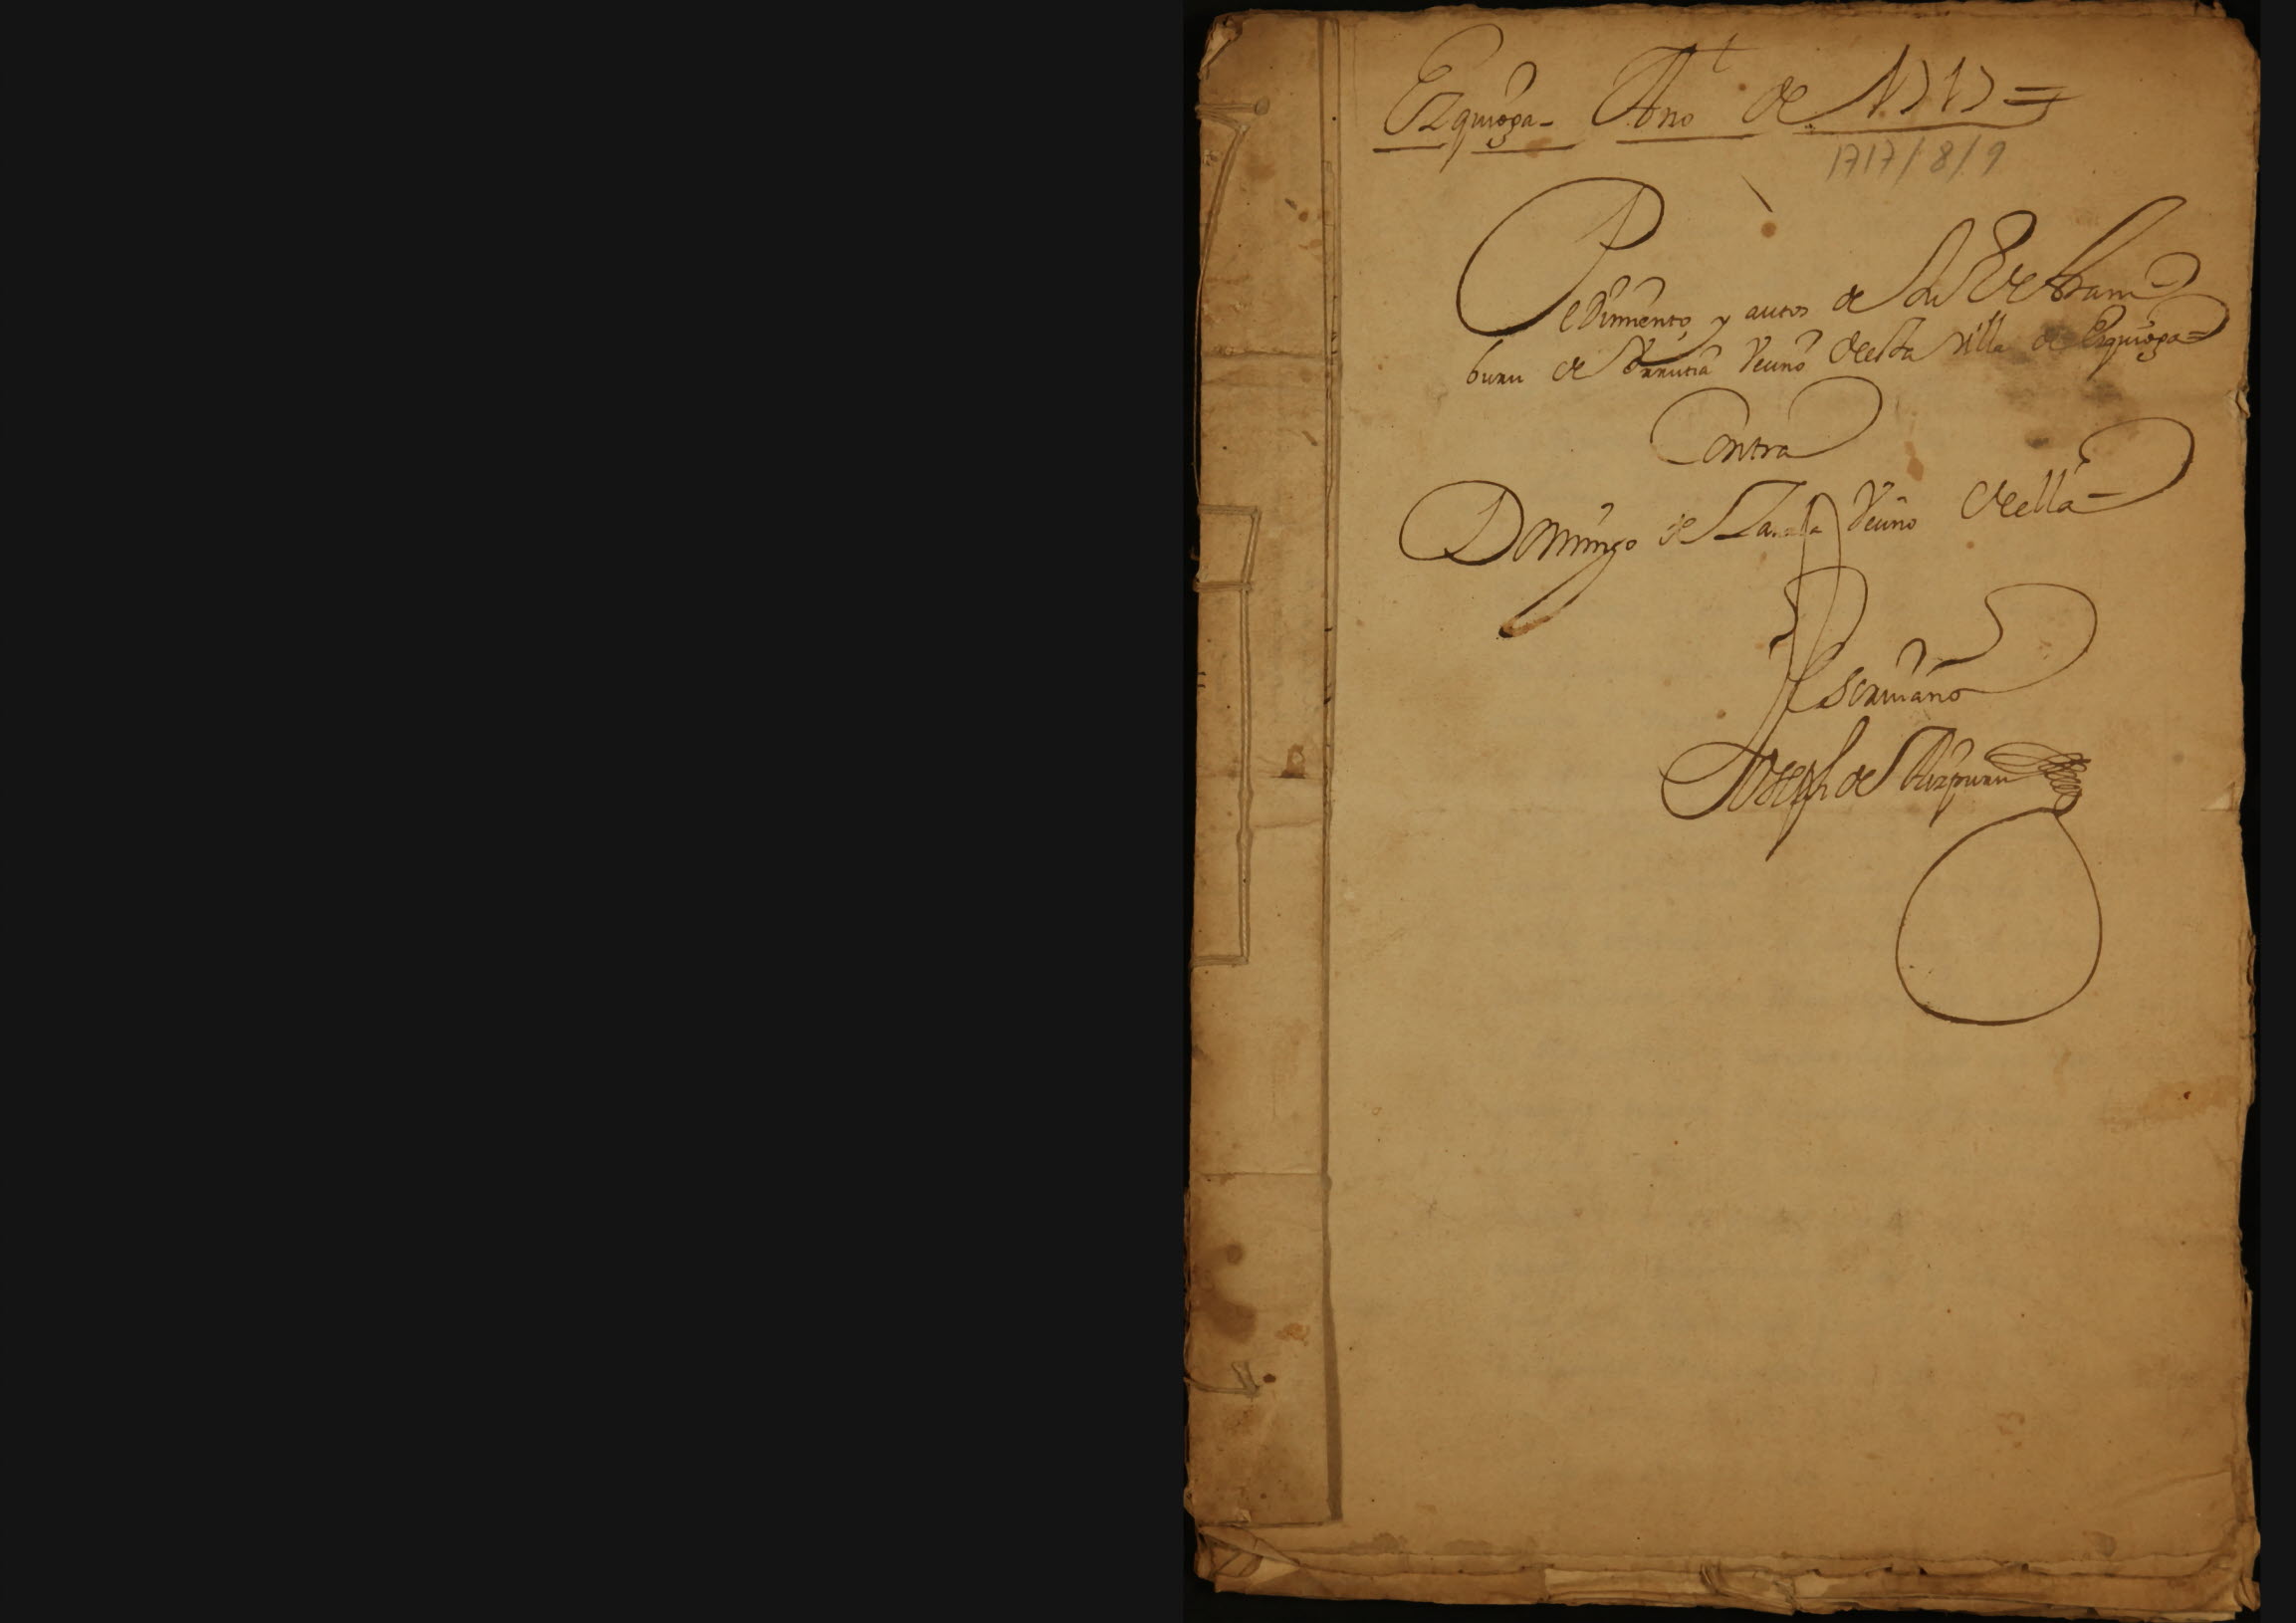 Ezquioga Año de 1717=
1717/8/9
Pedimiento y autos de
buru de Vrrutia Vecino desta Villa de Ezquioga=
Contra
Domingo de Vecino della
Escriuano
Joseph de Aizpuru